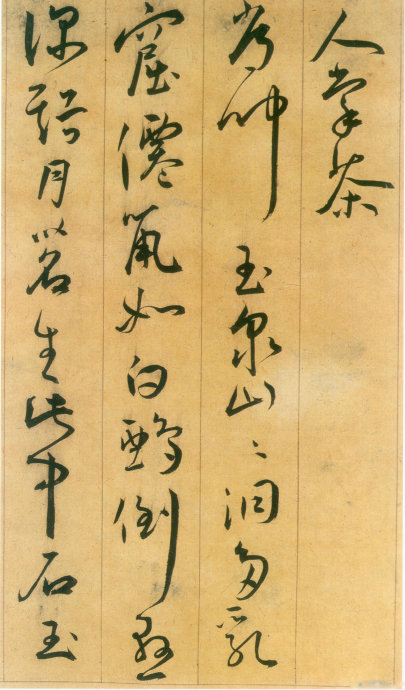 人掌茶
常聞玉泉山〻洞多乳
窟僊鼠如白鵶倒懸
深谿月茗生此中石玉